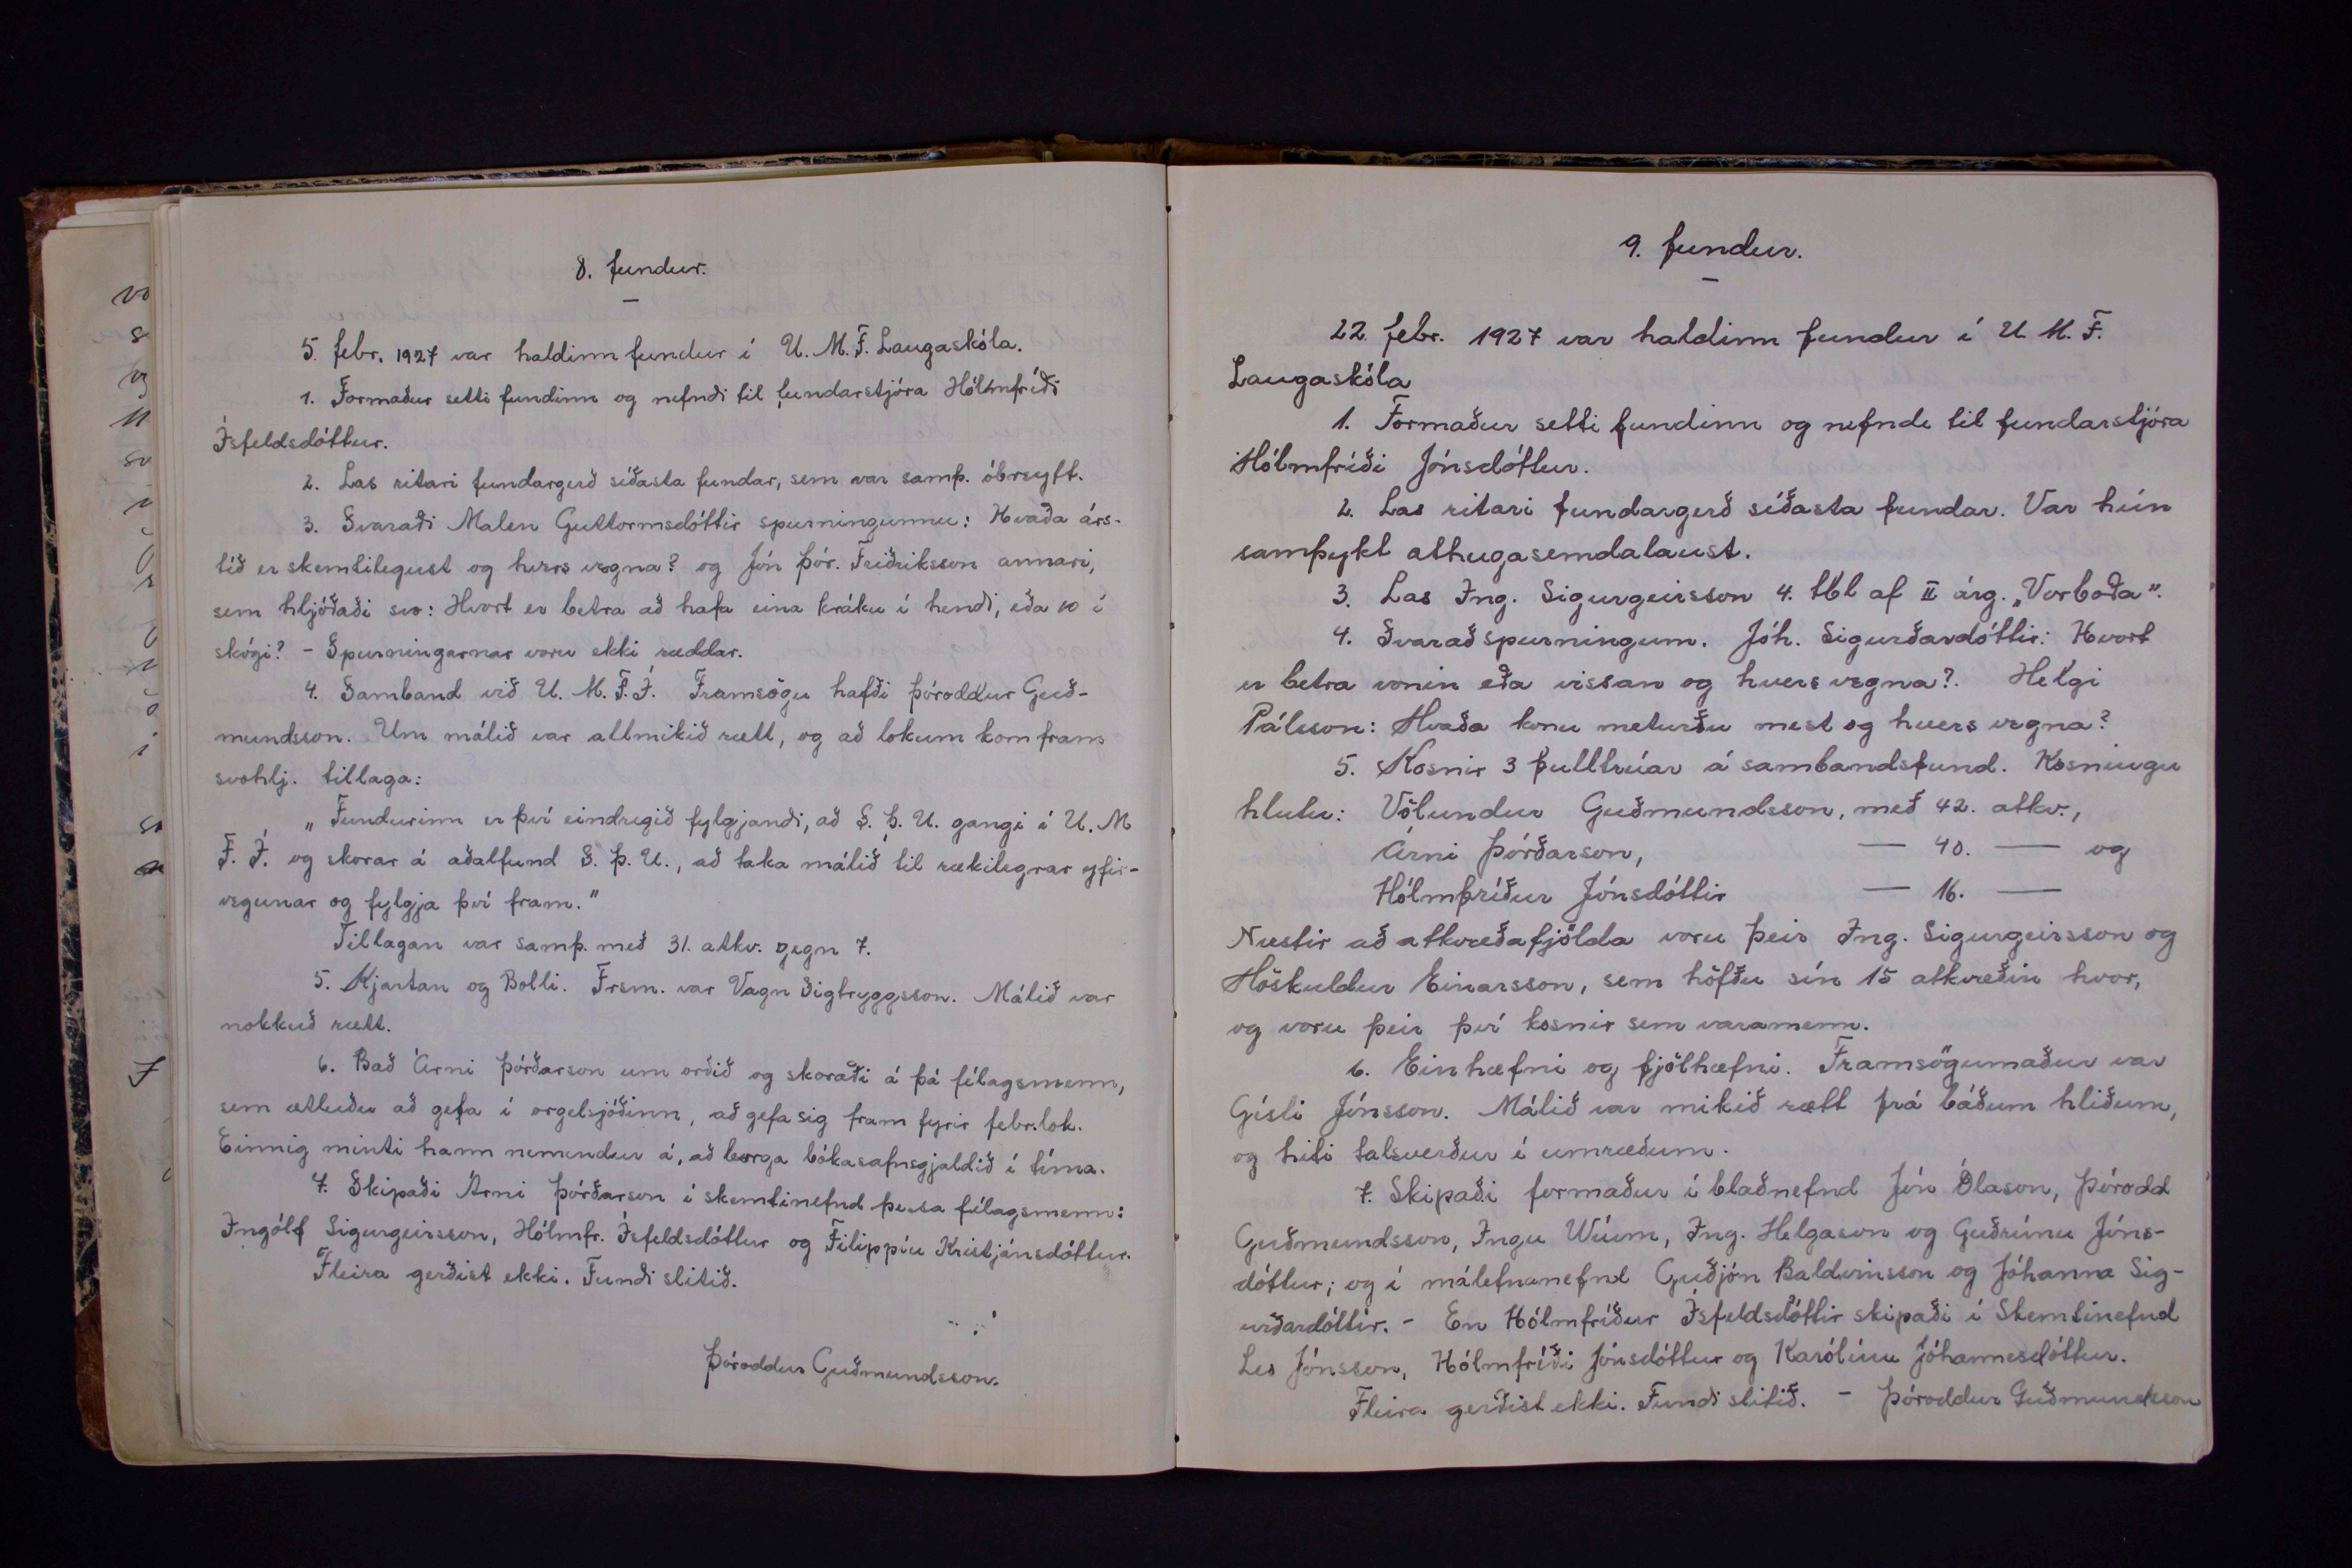 8. fundur.
5. febr. 1927 var haldinn fundur í U. M. F. Laugaskóla.
1. Formaður setti fundinn og nefndi til fundarstjóra Hólmfríði
Ísfeldsdóttur.
2. Las ritari fundargerð síðasta fundar, sem var samþ. óbreytt.
3. Svaraði Malen Guttormsdóttir spurningunnu: Hvaða árs-
tíð er skemtilegust og hvers vegna? og Jón Þór. Friðriksson annari,
sem hljóðaði svo: Hvort er betra að hafa eina kráku í hendi, eða 10 í
skógi? - Spurningarnar voru ekki ræddar.
4. Samband við U. M. F. Í. Framsögu hafði Þóroddur Guð-
mundsson. Um málið var allmikið rætt, og að lokum kom fram
svohlj. tillaga:
„Fundurinn er því eindregið fylgjandi, að S. Þ. U. gangi í U. M
F. Í. og skorar á aðalfund S. Þ. U., að taka málið til rækilegrar yfir-
vegunar og fylgja því fram."
Tillagan var samþ. með 31. atkv. gegn 7.
5. Kjartan og Bolli. Frsm. var Vagn Sigtryggsson. Málið var
nokkuð rætt.
6. Bað Árni Þórðarson um orðið og skoraði á þá félagsmenn,
sem ætluðu að gefa í orgelsjóðinn, að gefa sig fram fyrir febr.lok.
Einnig minti hann nemendur á, að borga bókasafnsgjaldið í tíma.
7. Skipaði Árni Þórðarson í skemtinefnd þessa félagsmenn:
Ingólf Sigurgeirsson, Hólmfr. Ísfeldsdóttur og Filippíu Kristjánsdóttur.
Fleira gerðist ekki. Fundi slitið.
Þóroddur Guðmundsson.
9. fundur.
22. febr. 1927 var haldinn fundur í U. M. F.
Laugaskóla
1. Formaður setti fundinn og nefnde til fundarstjóra
Hólmfríði Jónsdóttur.
2. Las ritari fundargerð síðasta fundar. Var hún
samþykt athugasemdalaust.
3. Las Ing. Sigurgeirsson 4. tbl af II árg. „Vorboða".
4. Svarað spurningum. Jóh. Sigurðardóttir: Hvort
er betra vonin eða vissan og hvers vegna?. Helgi
Pálsson: Hvaða konu meturðu mest og hvers vegna?
5. Kosnir 3 fulltrúar á sambandsfund. Kosningu
hlutu: Völundur Guðmundsson, með 42. atkv.,
Árni Þórðarson, — 40. — og
Hólmfríður Jónsdóttir — 16. —
Næstir að atkvæðafjölda voru þeir Ing. Sigurgeirsson og
Höskuldur Einarsson, sem höfðu sín 15 atkvæðin hvor,
og voru þeir því kosnir sem varamenn.
6. Einhæfni og fjölhæfni. Framsögumaður var
Gísli Jónsson. Málið var mikið rætt frá báðum hliðum,
og hiti talsverður í umræðum.
7. Skipaði formaður í blaðnefnd Jón Ólason, Þórodd
Guðmundsson, Ingu Wíum, Ing. Helgason og Guðrúnu Jóns-
dóttur; og í málefnanefnd Guðjón Baldvinsson og Jóhanna Sig-
urðardóttir. - En Hólmfríður Ísfeldsdóttir skipaði í Skemtinefnd
Les Jónsson, Hólmfríði Jónsdóttur og Karólínu Jóhannesdóttur.
Fleira gerðist ekki. Fundi slitið. - Þóroddur Guðmundsson